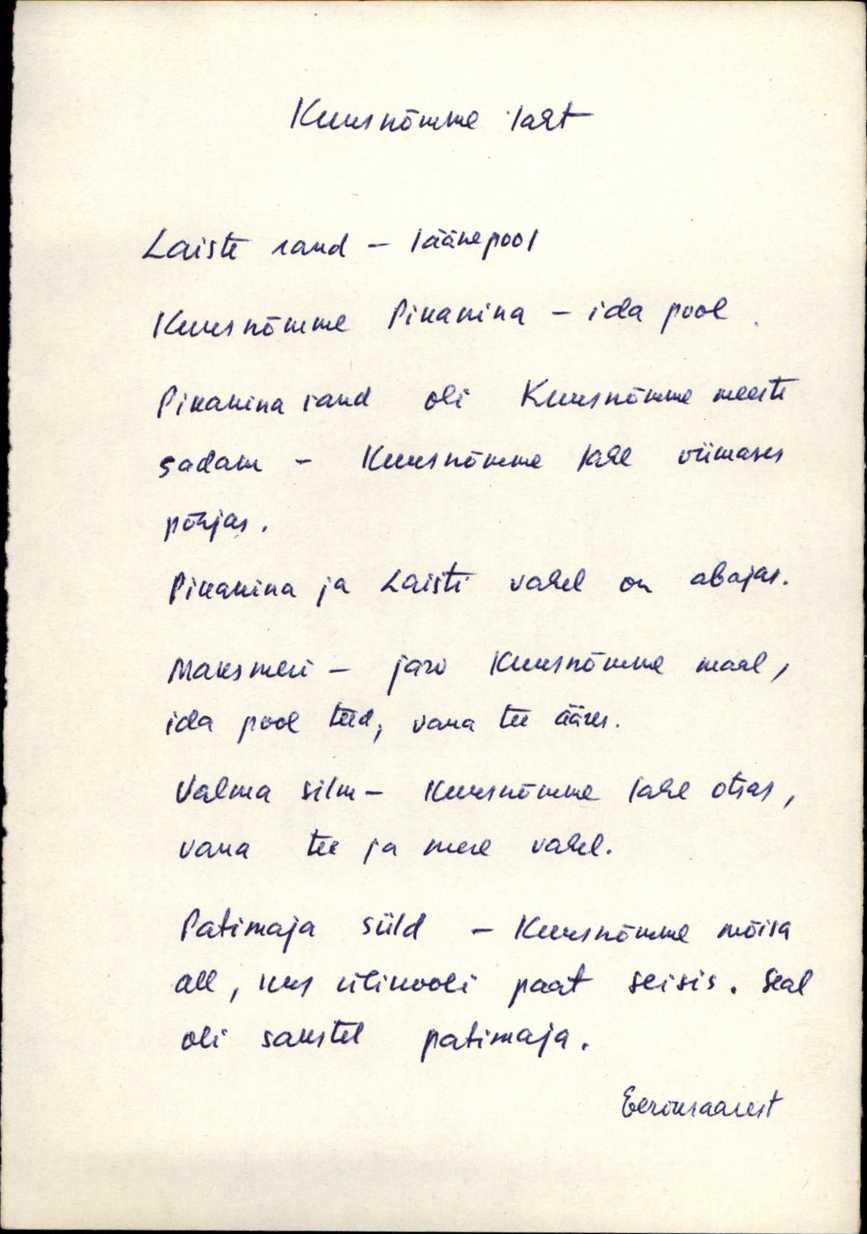 Kuusnõmme laht
Laiste rand – läänepool
Kuusnõmme Pikanina – ida pool.
Pikanina rand oli Kuusnõmme meeste
sadam – Kuusnõmme lahe viimases
põhjas.
Pikanina ja Laiste vahel on abajas.
Maksmeri – järv Kuusnõmme maal,
ida pool teed, vana tee ääres.
Valma silm – Kuusnõmme lahe otsas,
vana tee ja mere vahel.
Patimaja süld – Kuusnõmme mõisa
all, kus ülikooli paat seisis. Seal
oli sakstel patimaja.
Eeriksaarest